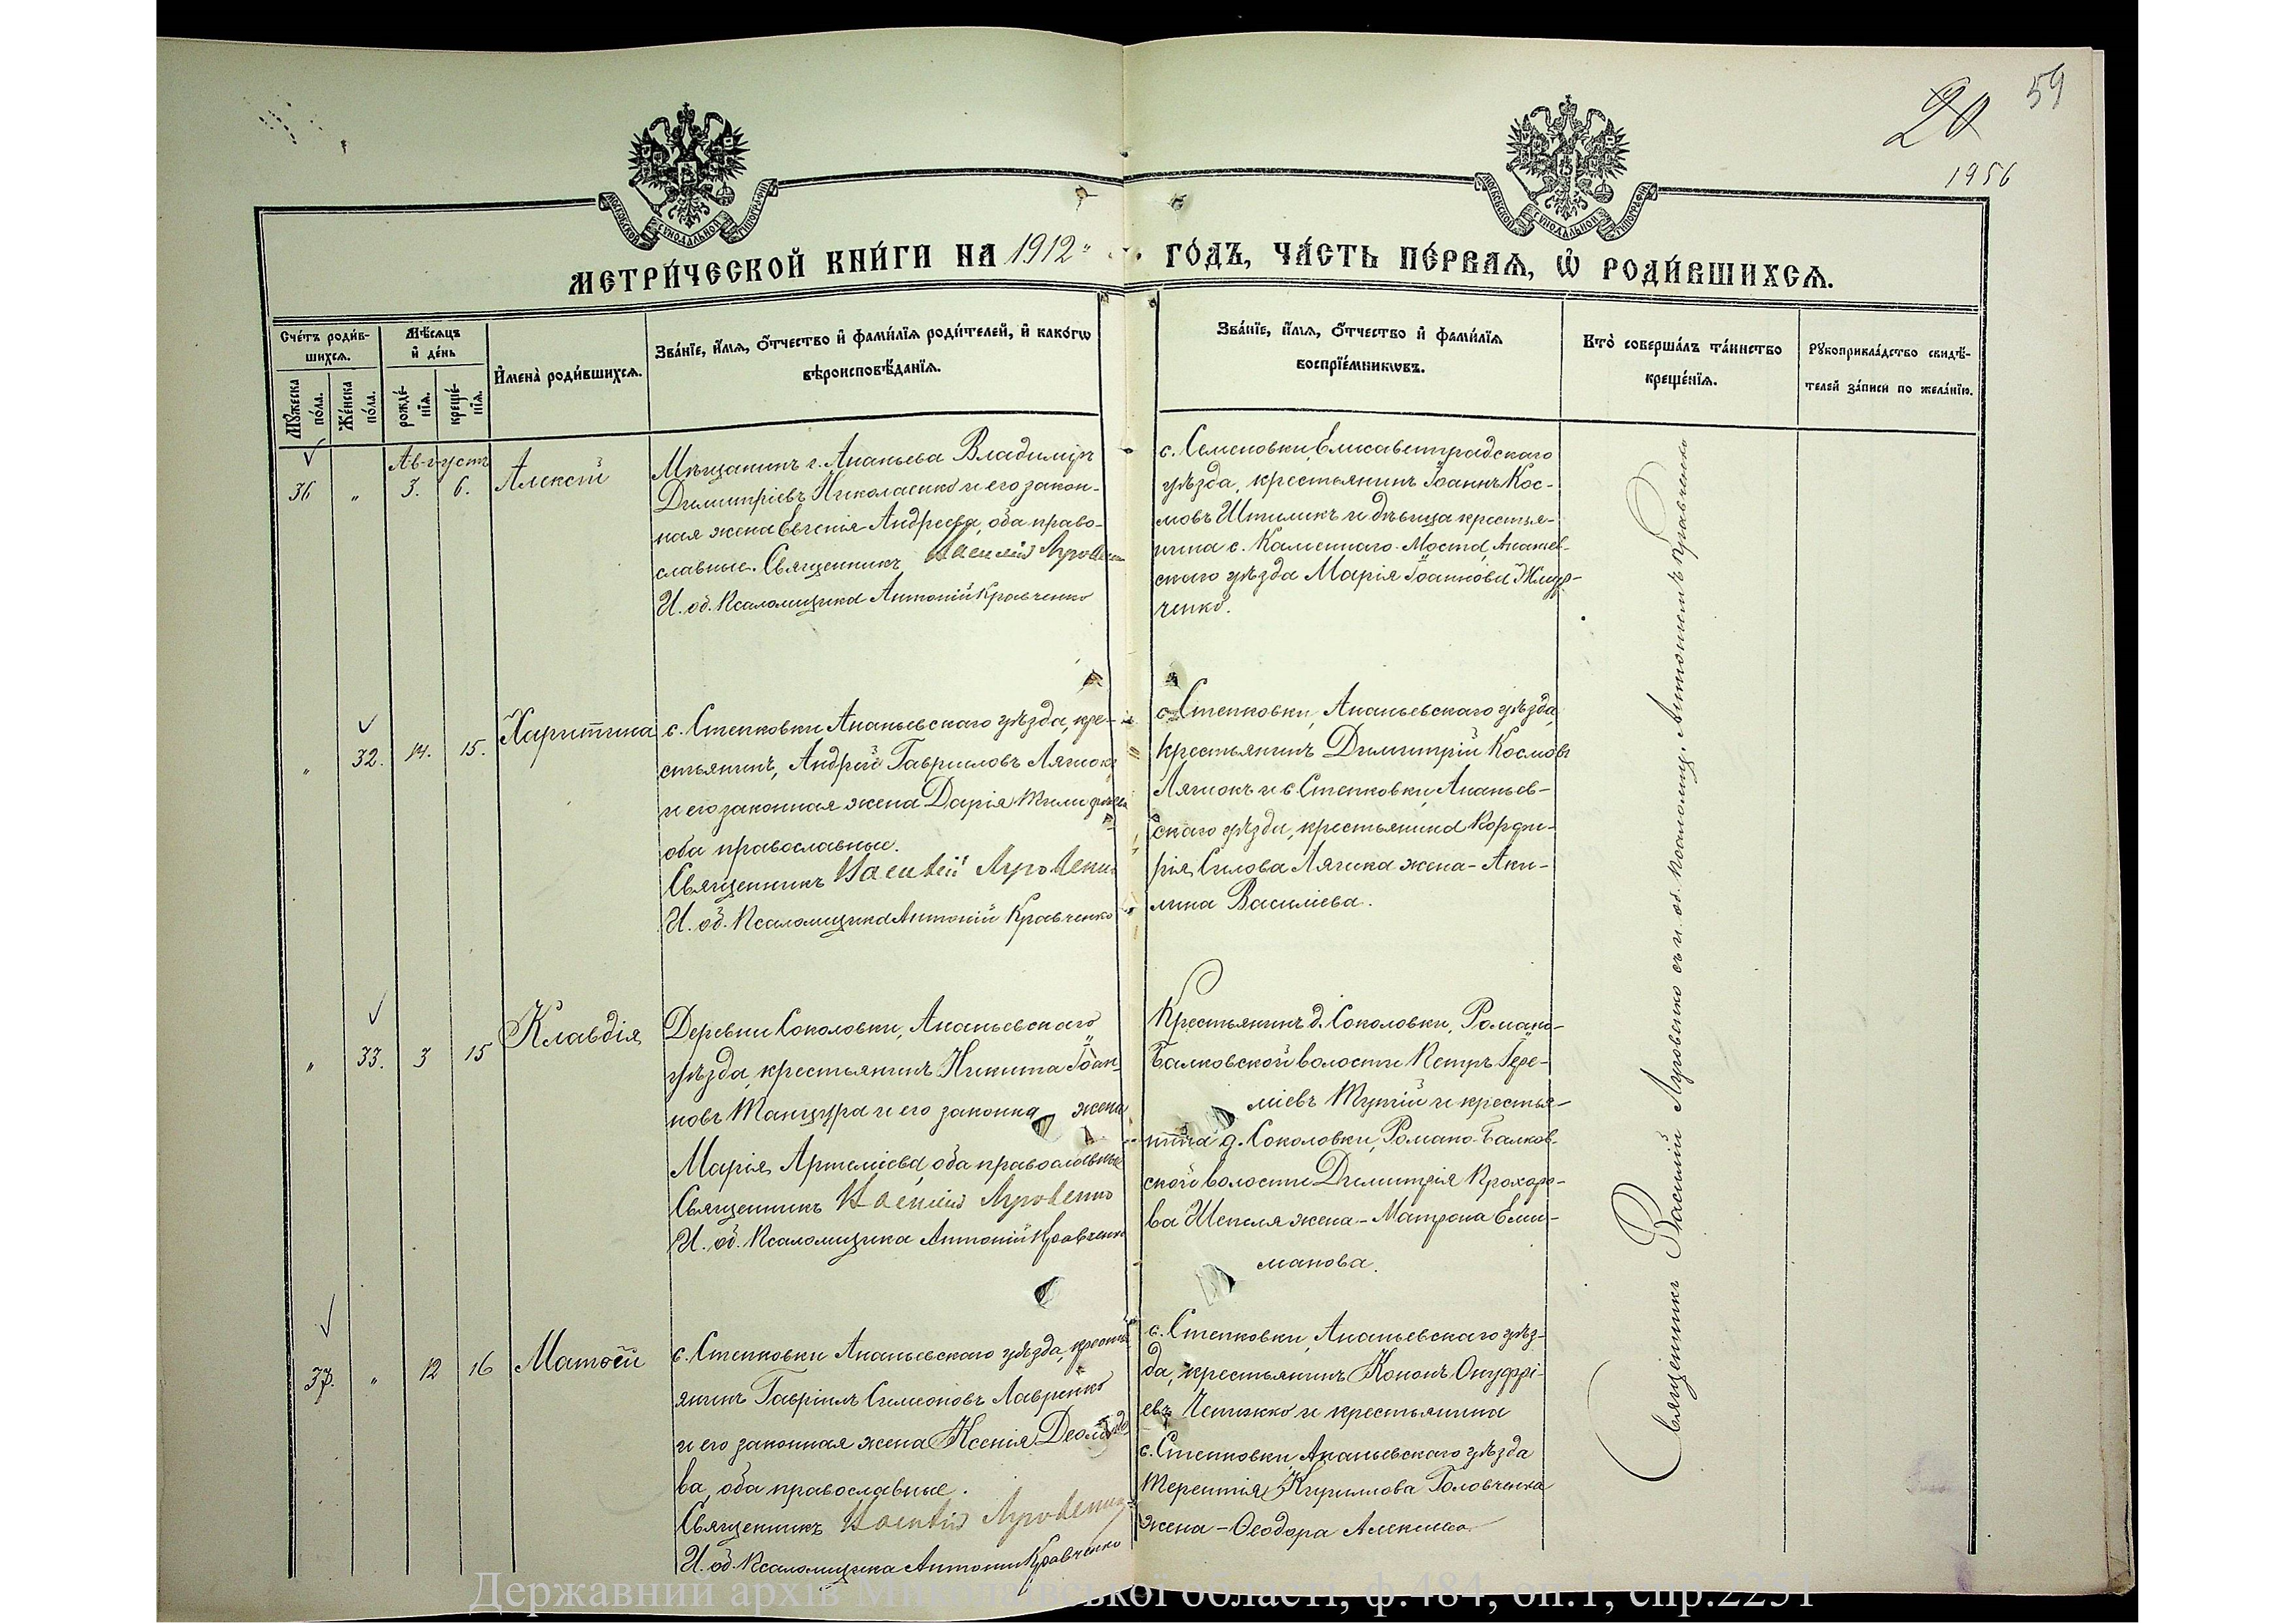 20 59
1956
МОСКОВСКОЙ СѴНОДАЛЬНОЙ ТИПОГРАФІИ
МОСКОВСКОЙ СѴНОДАЛЬНОЙ ТИПОГРАФІИ
МЕТРИ́ЧЕСКОЙ КНИ́ГИ НА 1912 ГО́ДЪ, ЧА́СТЬ ПЕ́РВАѦ, Ѡ҆ РОДИ́ВШИХСѦ.
Сче́тъ роди́в-
шихсѧ.
Мꙋ́жеска по́ла.
Же́нска по́ла.
Мѣ́сѧцъ
и҆ де́нь
рожде́-
нїѧ.
креще́-
нїѧ.
И҆мена̀ роди́вшихсѧ.
Зва́нїе, и҆́мѧ, ѻ҆́тчество и҆ фамилїѧ роди́телей, и҆ како́гѡ
вѣроисповѣ́данїѧ.
Зва́нїе, и҆́мѧ, ѻ҆́тчество и҆ фами́лїѧ
воспрїе́мникѡвъ.
Кто̀ соверша́лъ та́инство
креще́нїѧ.
Рꙋкоприкла́дство свидѣ́-
телей за́писи по жела́нїю.
36 " Августъ 3. 6. Алексѣй
Мѣщанинъ г. Ананьева Владиміръ
Димитріевъ Николаенко и его закон-
ная жена Евгенія Андреева, оба право-
славные. Священникъ Василій Луговенко
И. об. Псаломщика Антоній Кравченко
с. Семеновки, Елисаветградскаго
уѣзда, крестьянинъ Іоаннъ Кос-
мовъ Штиликъ и дѣвица крестья-
нина с. Каменнаго-Моста, Ананьев-
скаго уѣзда Марія Іоаннова
ченко.
" 32. 14. 15. Харитина
с. Степковки Ананьевскаго уѣзда, кре-
стьянинъ, Андрей Гавриловъ Лягиокъ
и его законная жена Дарія
оба православные.
Священникъ Василій Луговенко
И. об. Псаломщика Антоній Кравченко
с. Степковки, Ананьевскаго уѣзда,
крестьянинъ Димитрій Космовъ
Лягиокъ и с. Степковки, Ананьев-
скаго уѣзда, крестьянина Порфи-
рія Силова Лягика жена - Аки-
лина Василіева.
" 33. 3 15 Клавдія
Деревни Соколовки, Ананьевскаго
уѣзда, крестьянинъ Никита Іоан-
новъ Танцура и его законна жена
Марія Артеміева, оба православные
Священникъ Василій Луговенко
И. об. Псаломщика Антоній Кравченко
Крестьянинъ д. Соколовки, Романо-
Балковской волости Петръ Іере-
міевъ и крестья-
нина д. Соколовки, Романо-Балков-
ской волости Димитрія Прохоро-
ва Шепеля жена - Матрона
манова.
37. " 12 16 Матѳей
с. Степковки Ананьевскаго уѣзда, кресть-
янинъ Гавріилъ Симеоновъ Лавренко
и его законная жена Ксенія
ва, оба православные.
Священникъ Василій Луговенко
И. об. Псаломщика Антоній Кравченко
с. Степковки, Ананьевскаго уѣз-
да, крестьянинъ Кононъ Онуфрі-
евъ и крестьянина
с. Степковки, Ананьевскаго уѣзда
Терентія Кириллова Головченка
жена - Ѳеодора
Священникъ Василій Луговенко съ и. об. псаломщ. Антоніемъ Кравченко
Державний архів Миколаївської області, ф.484, оп.1, спр.2251